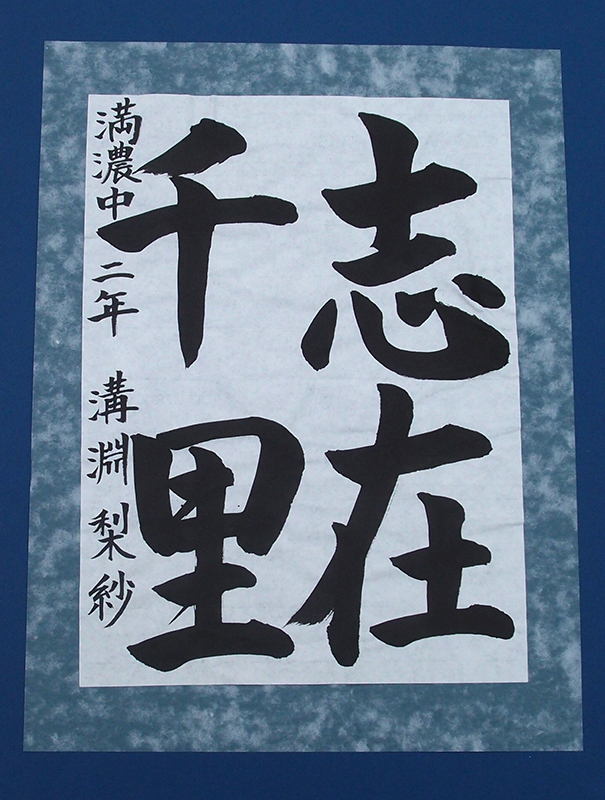 志在
千里
満濃中 二年 溝淵 梨紗